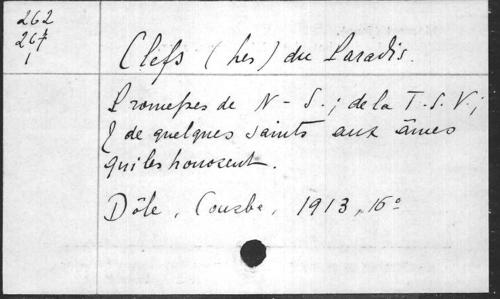 262
267
1
Clefs (Les) du Paradis.
Promesses de N-S.; de la T.S.V.;
& de quelques saints aux âmes
qui les honorent.
Dôle, Courbe, 1913, 16º